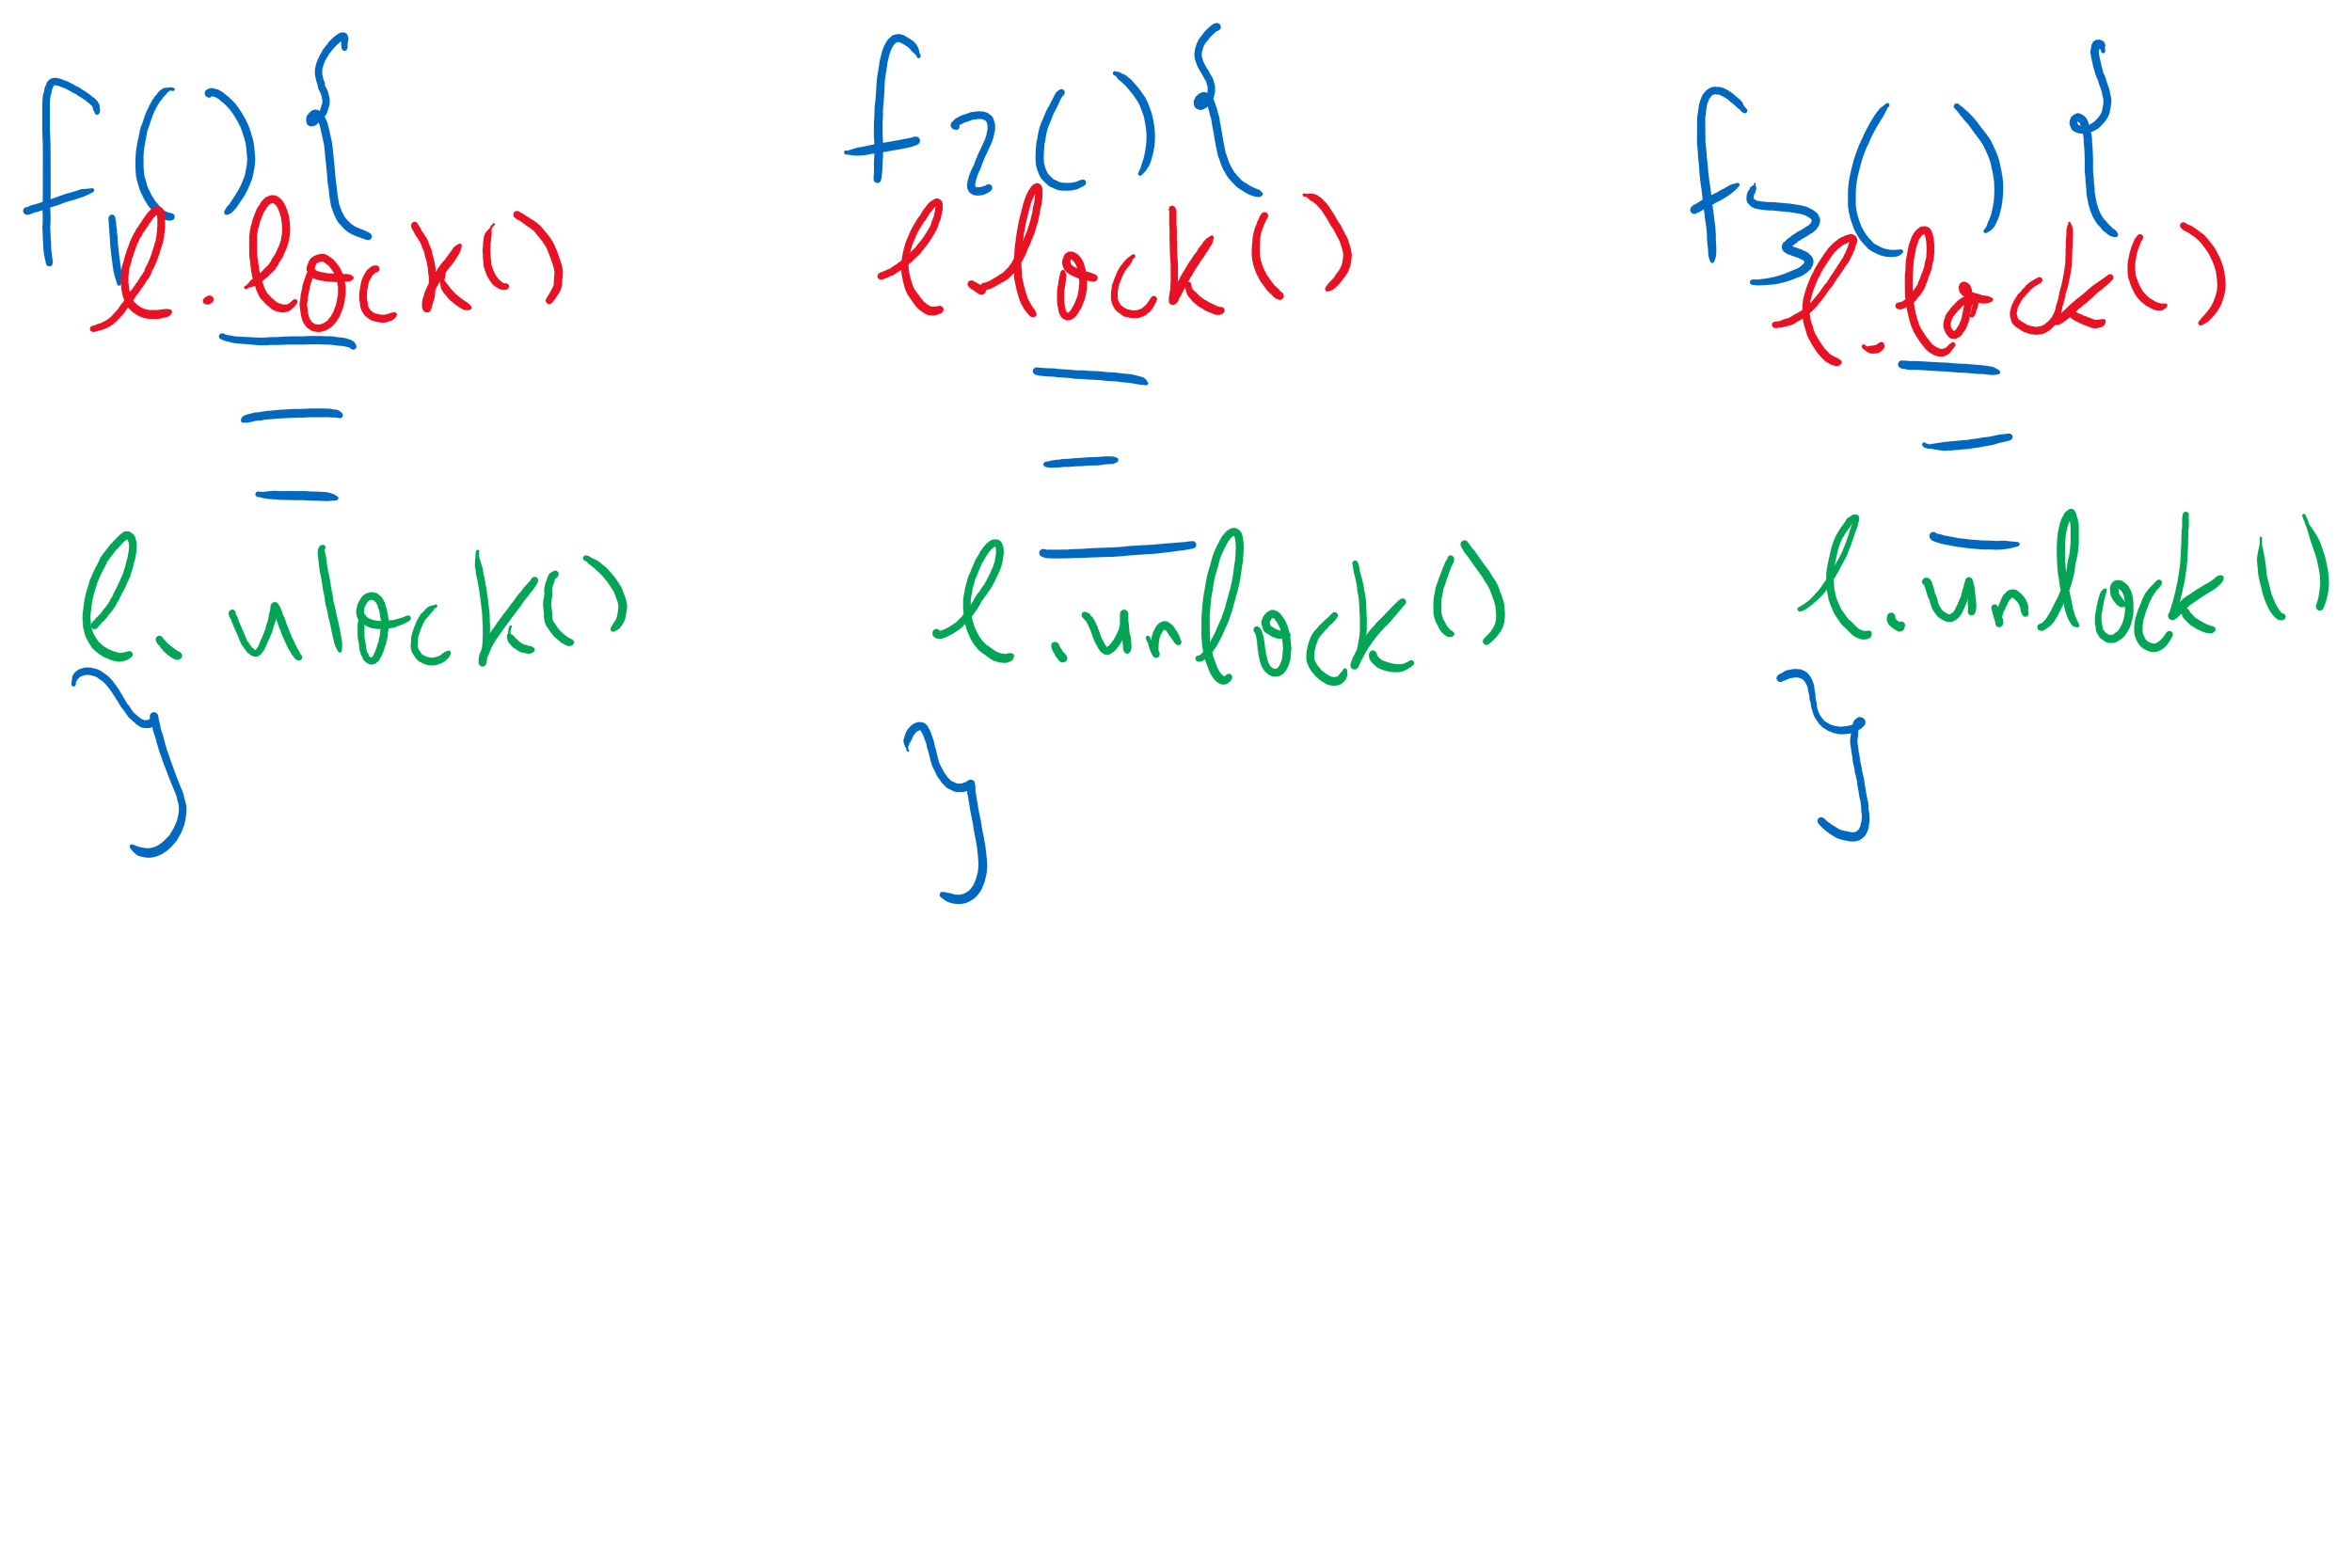 f1(){
l.lock()
l.unlock()
}
f2(){
l.lock()
l.unlock()
}
f3(){
l.lock()
l.unlock()
}